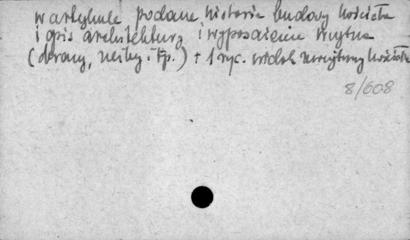 w artykule podana historia budowy kościoła
i opis architektury i wyposażenia wnętrza
(obrazy, rzeźby itp.) + 1 ryc. widok zewnętrzny kościoła
8/608